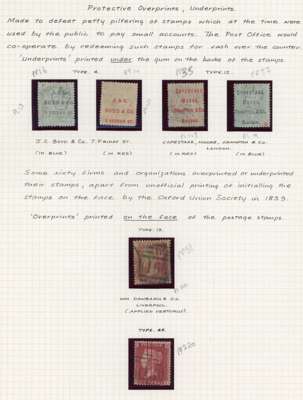 Protective Overprints, Underprints.
Made to defeat petty pilfering of stamps which at the time were
used by the public to pay small accounts. The Post Office would
co-operate by redeeming such stamps for cash over the counter.
'Underprints' printed under the gum on the backs of the stamps.
TYPE 4.
TYPE 12.
J.C. BOYD & CO. 7. FRIDAY ST.
(IN BLUE)
(IN RED)
COPESTAKE, MOORE, CRAMPTON & CO.
LONDON.
(IN RED)
(IN BLUE)
Some sixty firms and organizations overprinted or underprinted
their stamps, apart from unofficial printing of initialling the
stamps on the face by the Oxford Union Society in 1859.
'Overprints' printed on the face of the postage stamps.
TYPE 13.
WM DAWBARN & CO.
LIVERPOOL.
(APPLIED VERTICALLY)